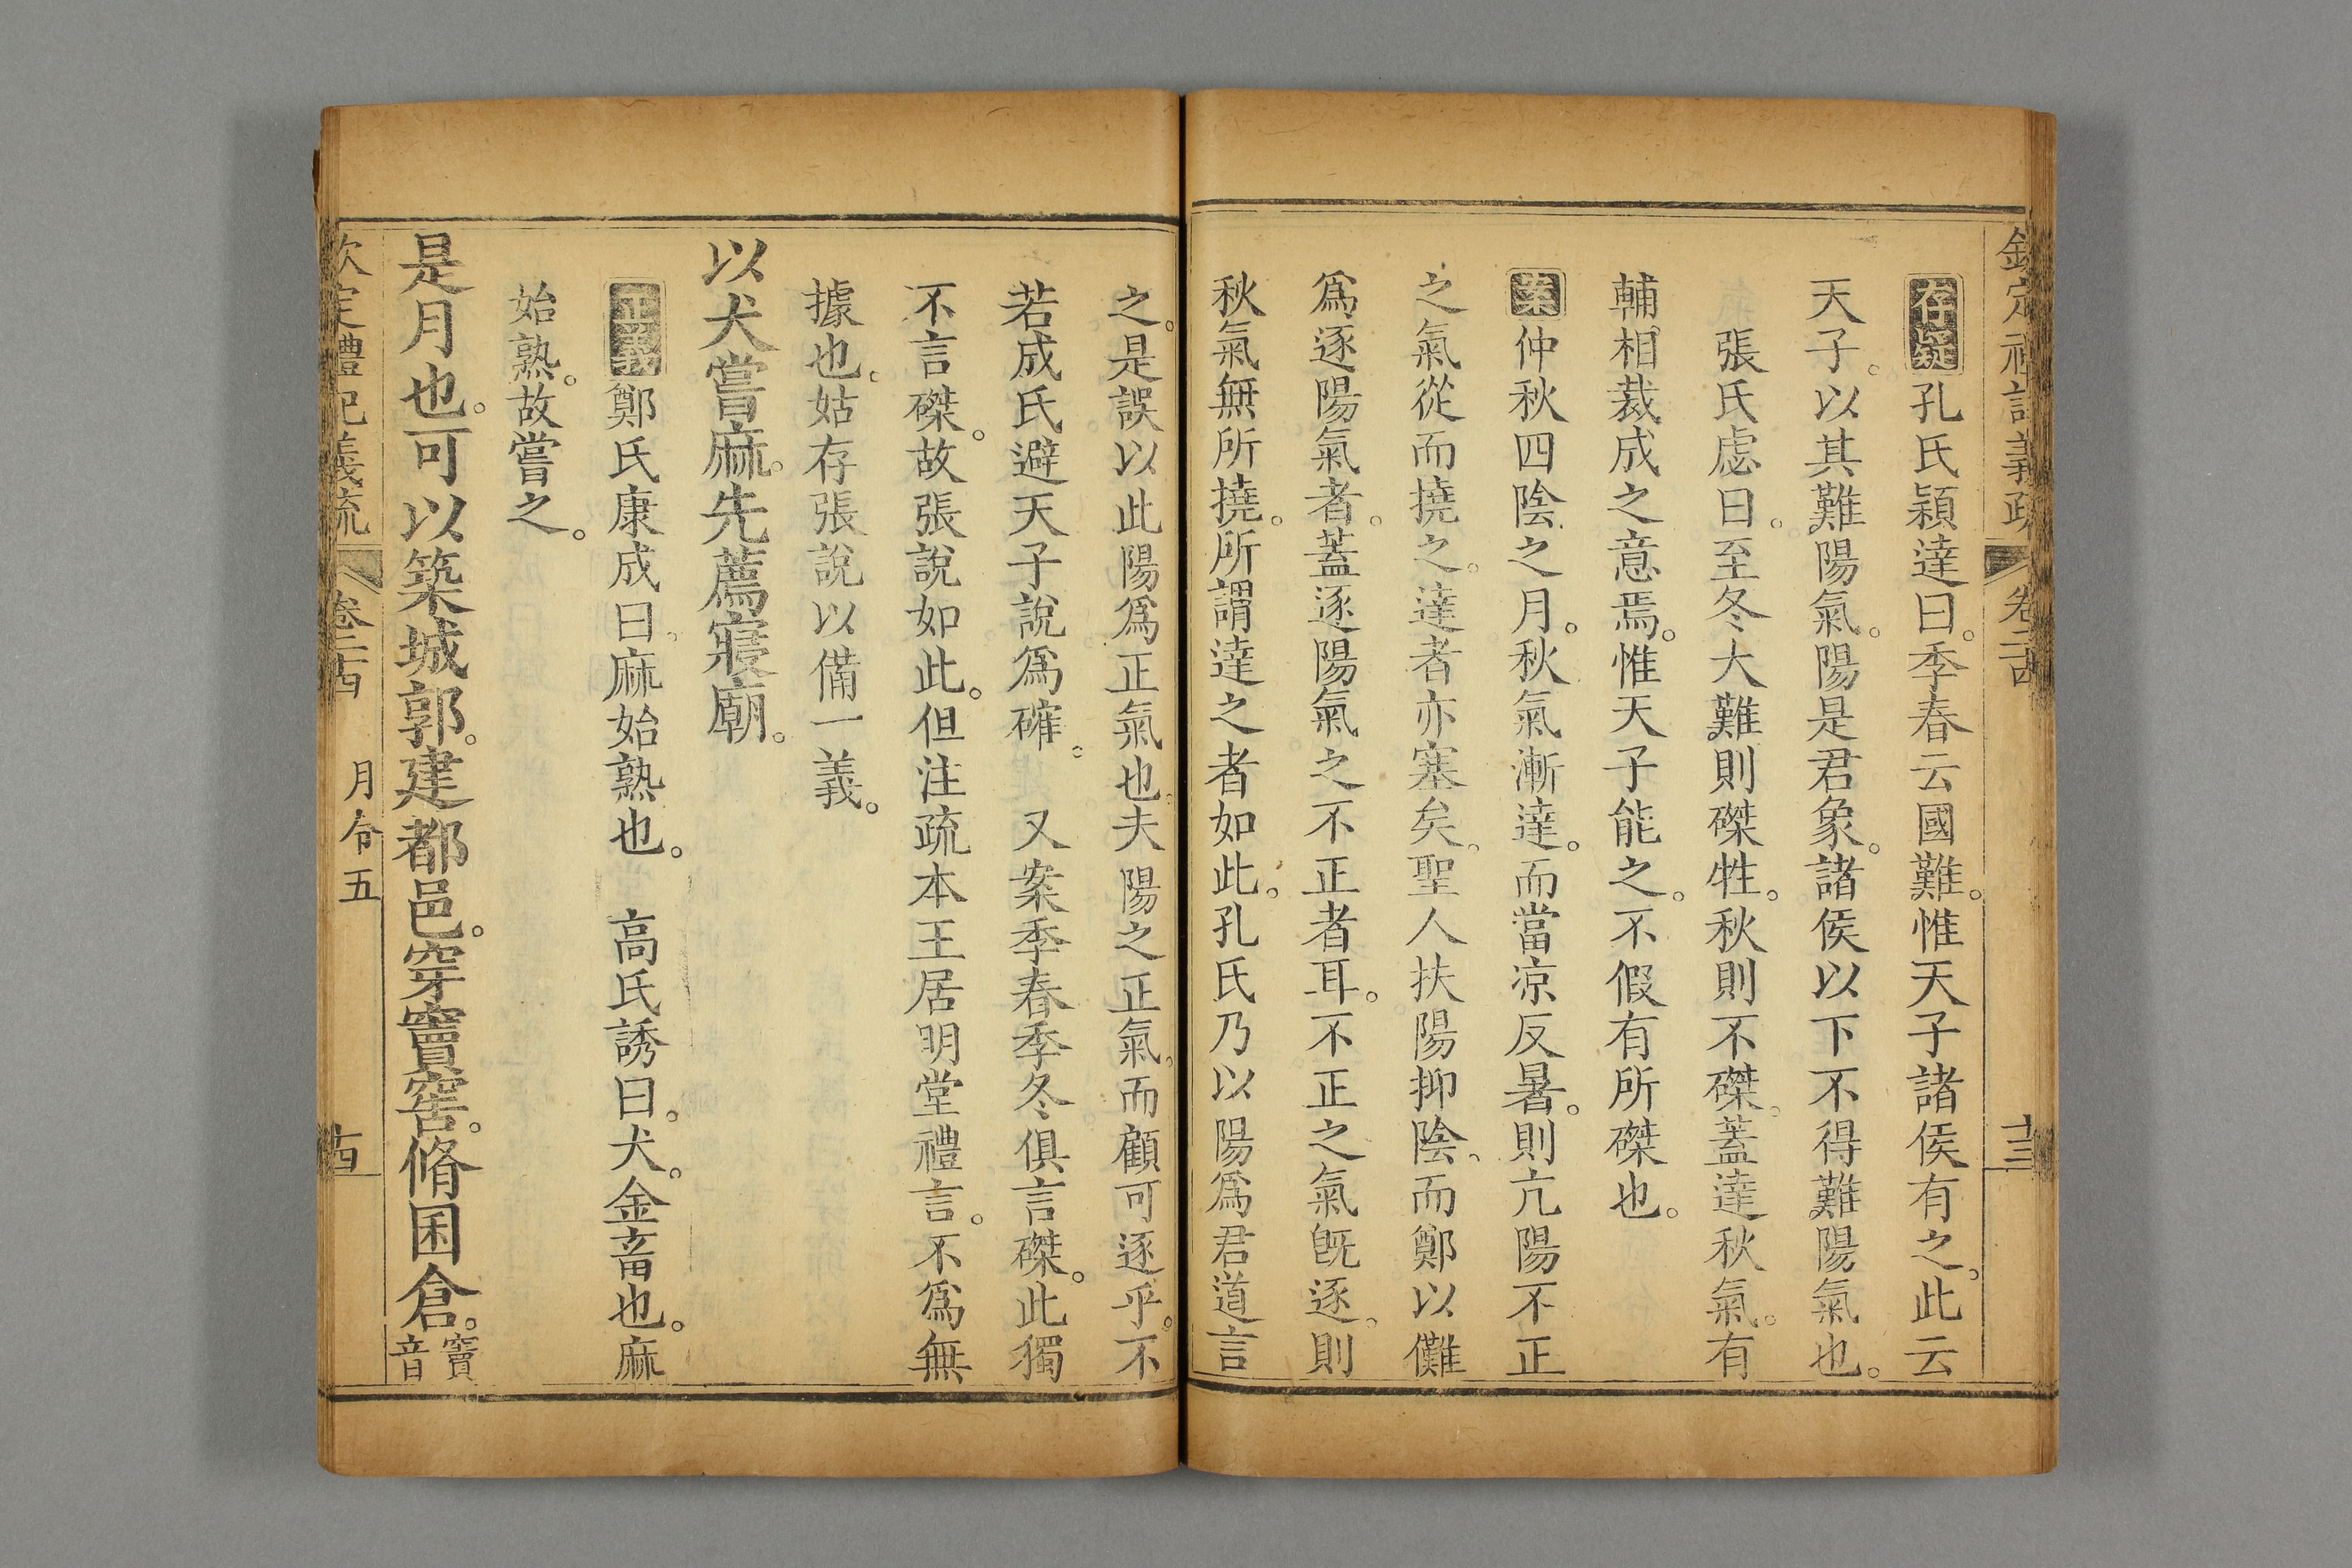 欽定禮記義疏 卷二十四 十三
存疑孔氏穎達曰。季春云國難。惟天子諸侯有之。此云
天子。以其難陽氣。陽是君象。諸侯以下不得難陽氣也。
張氏慮曰。至冬大難則磔牲。秋則不磔。蓋達秋氣。有
輔相裁成之意焉。惟天子能之。不假有所磔也。
案仲秋四陰之月。秋氣漸達。而當凉反暑。則亢陽不正
之氣從而撓之。達者亦塞矣。聖人扶陽抑陰。而鄭以儺
爲逐陽氣者。蓋逐陽氣之不正者耳。不正之氣旣逐。則
秋氣無所撓。所謂達之者如此。孔氏乃以陽爲君道言
之。是誤以此陽爲正氣也。夫陽之正氣。而顧可逐乎。不
若成氏避天子說爲確。 又案季春季冬俱言磔。此獨
不言磔。故張說如此。但注疏本王居明堂禮言。不爲無
據也。姑存張說以備一義。
以犬嘗麻。先薦寢廟。
正義鄭氏康成曰。麻始熟也。 高氏誘曰。犬。金畜也。麻
始熟。故嘗之。
是月也。可以築城郭。建都邑。穿竇窖。脩囷倉。竇音
欽定禮記義疏 卷二十四 月令五 十四